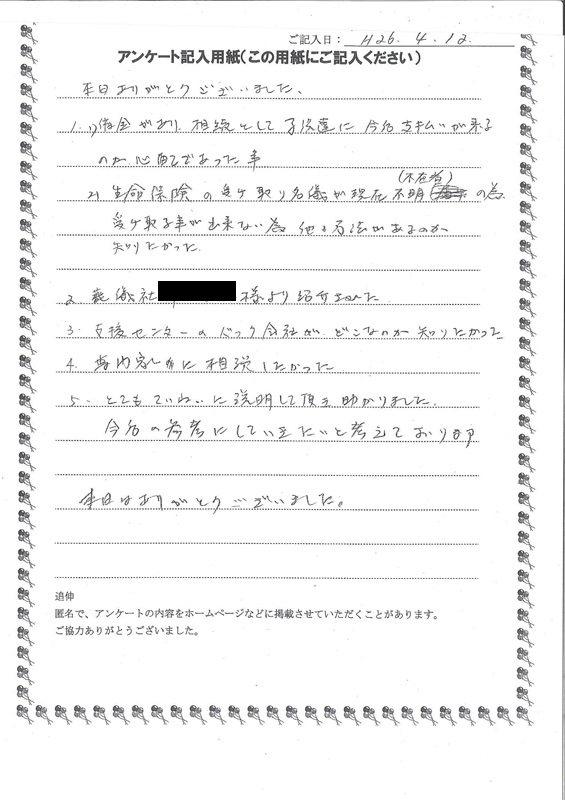 ご記入日： H26. 4. 12.
アンケート記入用紙（この用紙にご記入ください）
本日ありがとうございました、
1. 1) 借金があり、相続として子供達に今后支払いが来る
のか心配であった事
(不在者)
2) 生命保険の受け取り名儀が現在不明の為
受け取る事が出来ない為 他の方法があるのか
知りたかった
2 葬儀社 様より紹介された
3. 支援センターのバック会社が、どこなのか知りたかった
4. 専門家に相談したかった
5. とてもていねいに説明して頂き助かりました。
今后の参考にしていきたいと考えております
本日はありがとうございました。
追伸
匿名で、アンケートの内容をホームページなどに掲載させていただくことがあります。
ご協力ありがとうございました。